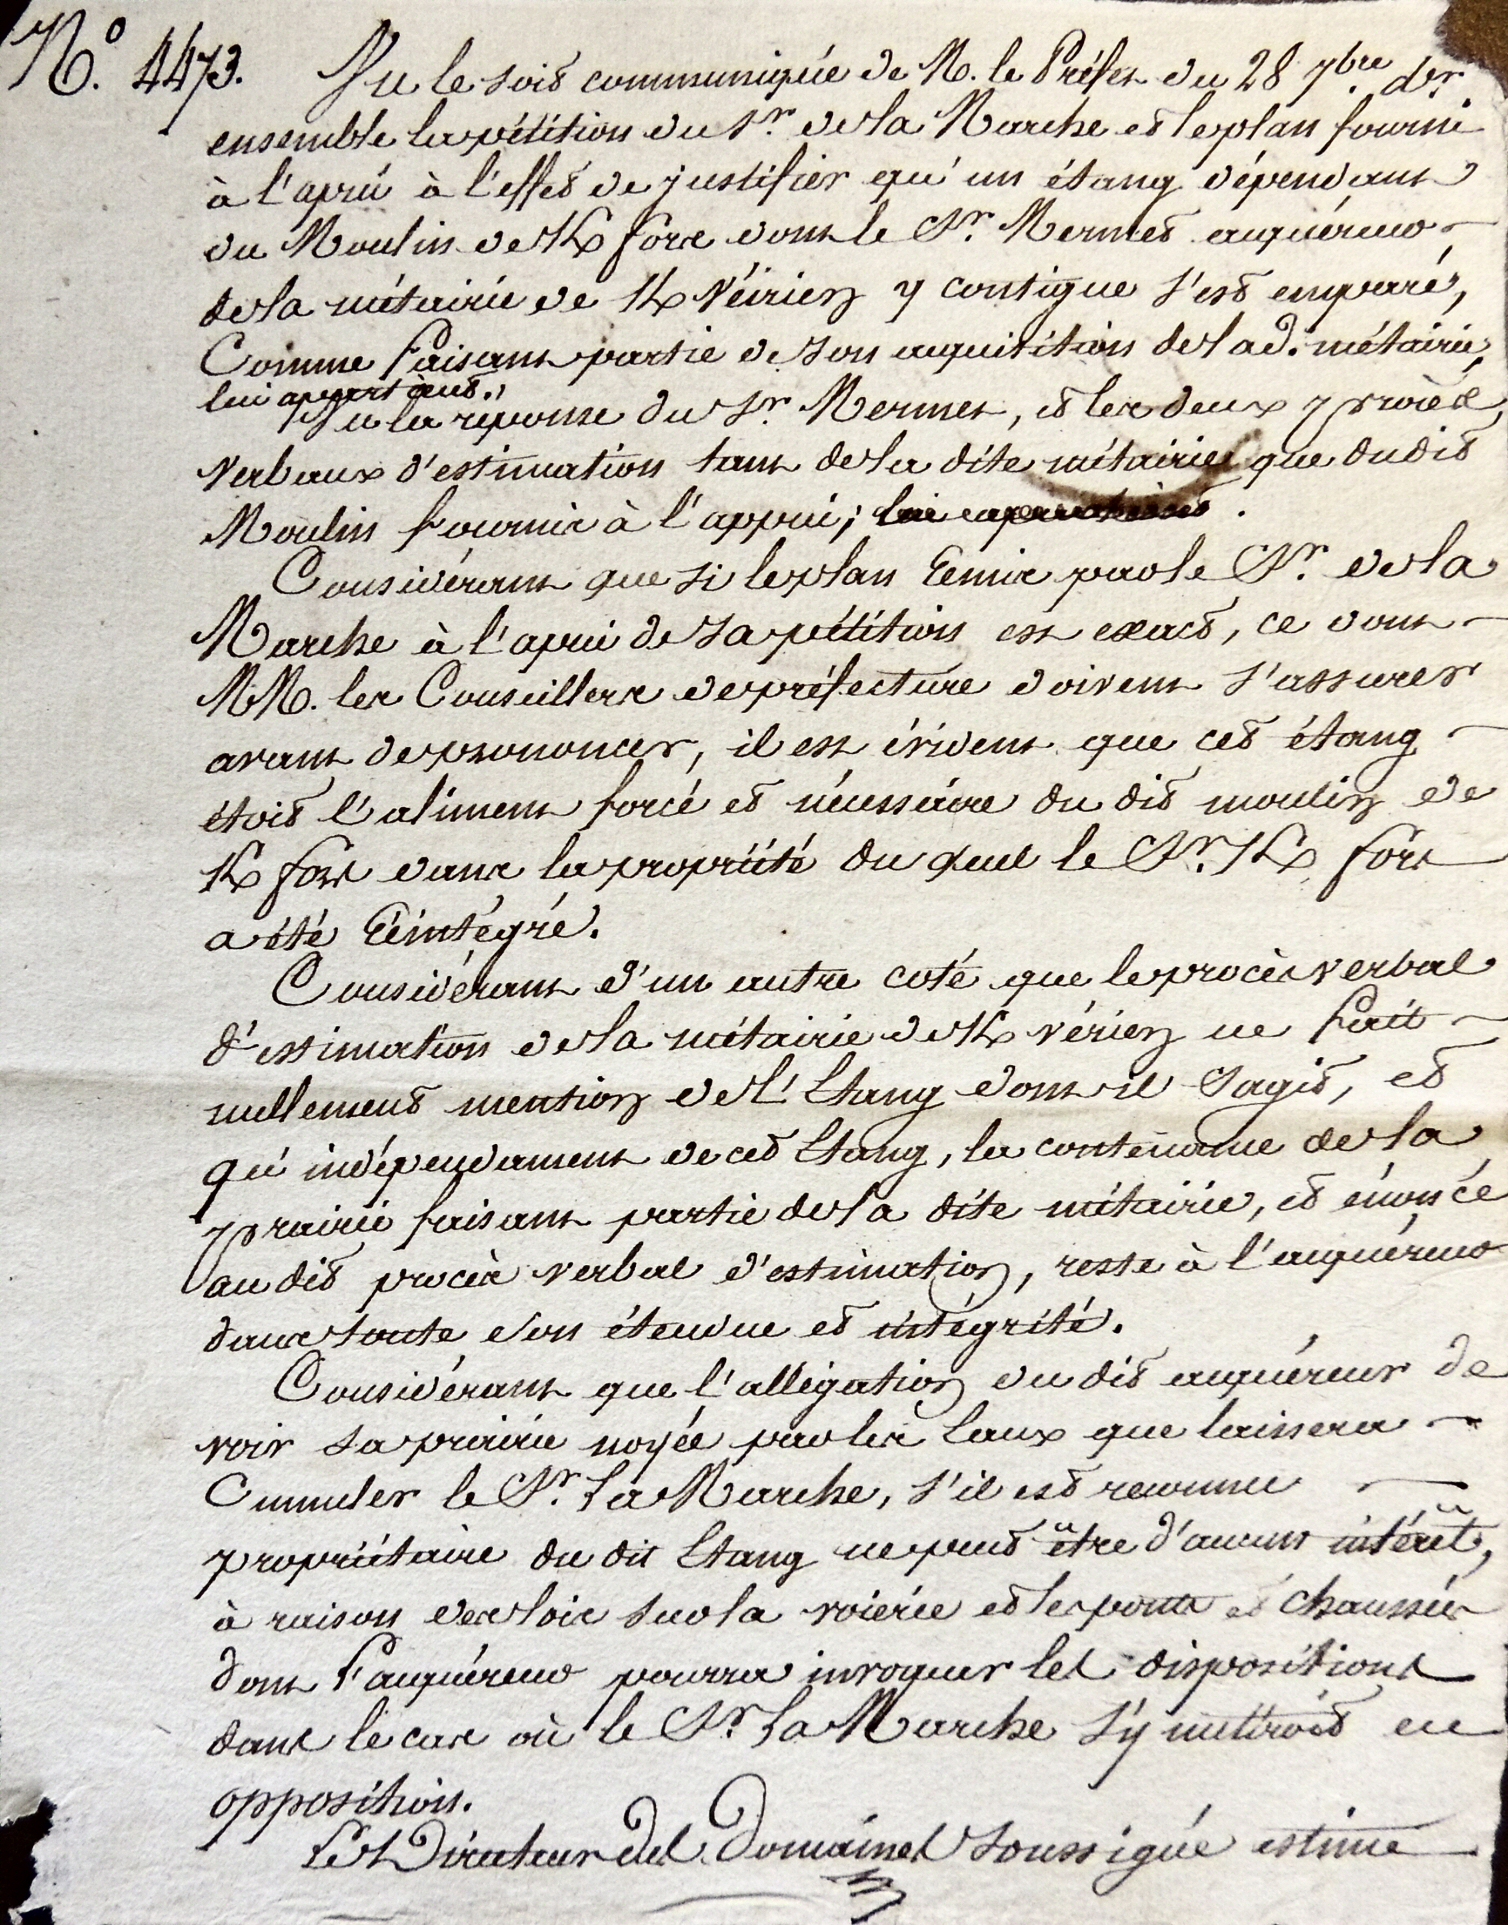 N.º 4473. Vu le soit communiqué de M. le Préfet du 28 7.bre d.er
ensemble la pétition du S.r de la Marche et le plan fourni
à l'apui à l'effet de justifier qu'un étang dépendant
du Moulin de K/fors dont le S.r Mermet acquéreur
de la métairie de K/véirien y contigue s'est emparé,
Comme faisant partie de son acquisition de lad. métairie,
lui appartient.,
Vu la réponse du S.r Mermet, et les deux procès
verbaux d'estimation tant de la dite métairie que dudit
Moulin fournis à l'appui; lui appartient.
Considérant que si le plan remis par le S.r de la
Marche à l'apui de sa pétition est exact, ce dont
MM. les Conseillers de préfecture doivent s'assurer
avant de prononcer, il est évident que cet étang
étoit l'aliment forcé et nécessaire du dit moulin de
K/fors dans la propriété du quel le S.r K/fors
a été réintégré.
Considérant d'un autre coté que le procès verbal
d'estimation de la métairie de K/vérien ne fait
nullement mention de l'Etang dont il sagit, et
qu'indépendament de cet Etang, la contenance de la
prairie faisant partie de la dite métairie, et énoncé
au dit procès verbal d'estimation, reste à l'acquéreur
dans toute son étendue et intégrité.
Considérant que l'allégation du dit acquéreur de
voir sa prairie noyée par les Eaux que laissera
Cumuler le S.r La Marche, s'il est reconnu
propriétaire du dit Etang ne peut être d'aucun intérêt,
à raison des loix sur la voiérie et les ponts et chaussées
dont l'acquéreur pourra invoquer les dispositions
dans le cas où le S.r La Marche s'y mettroit en
opposition.
Le Directeur des Domaines Soussigné estime